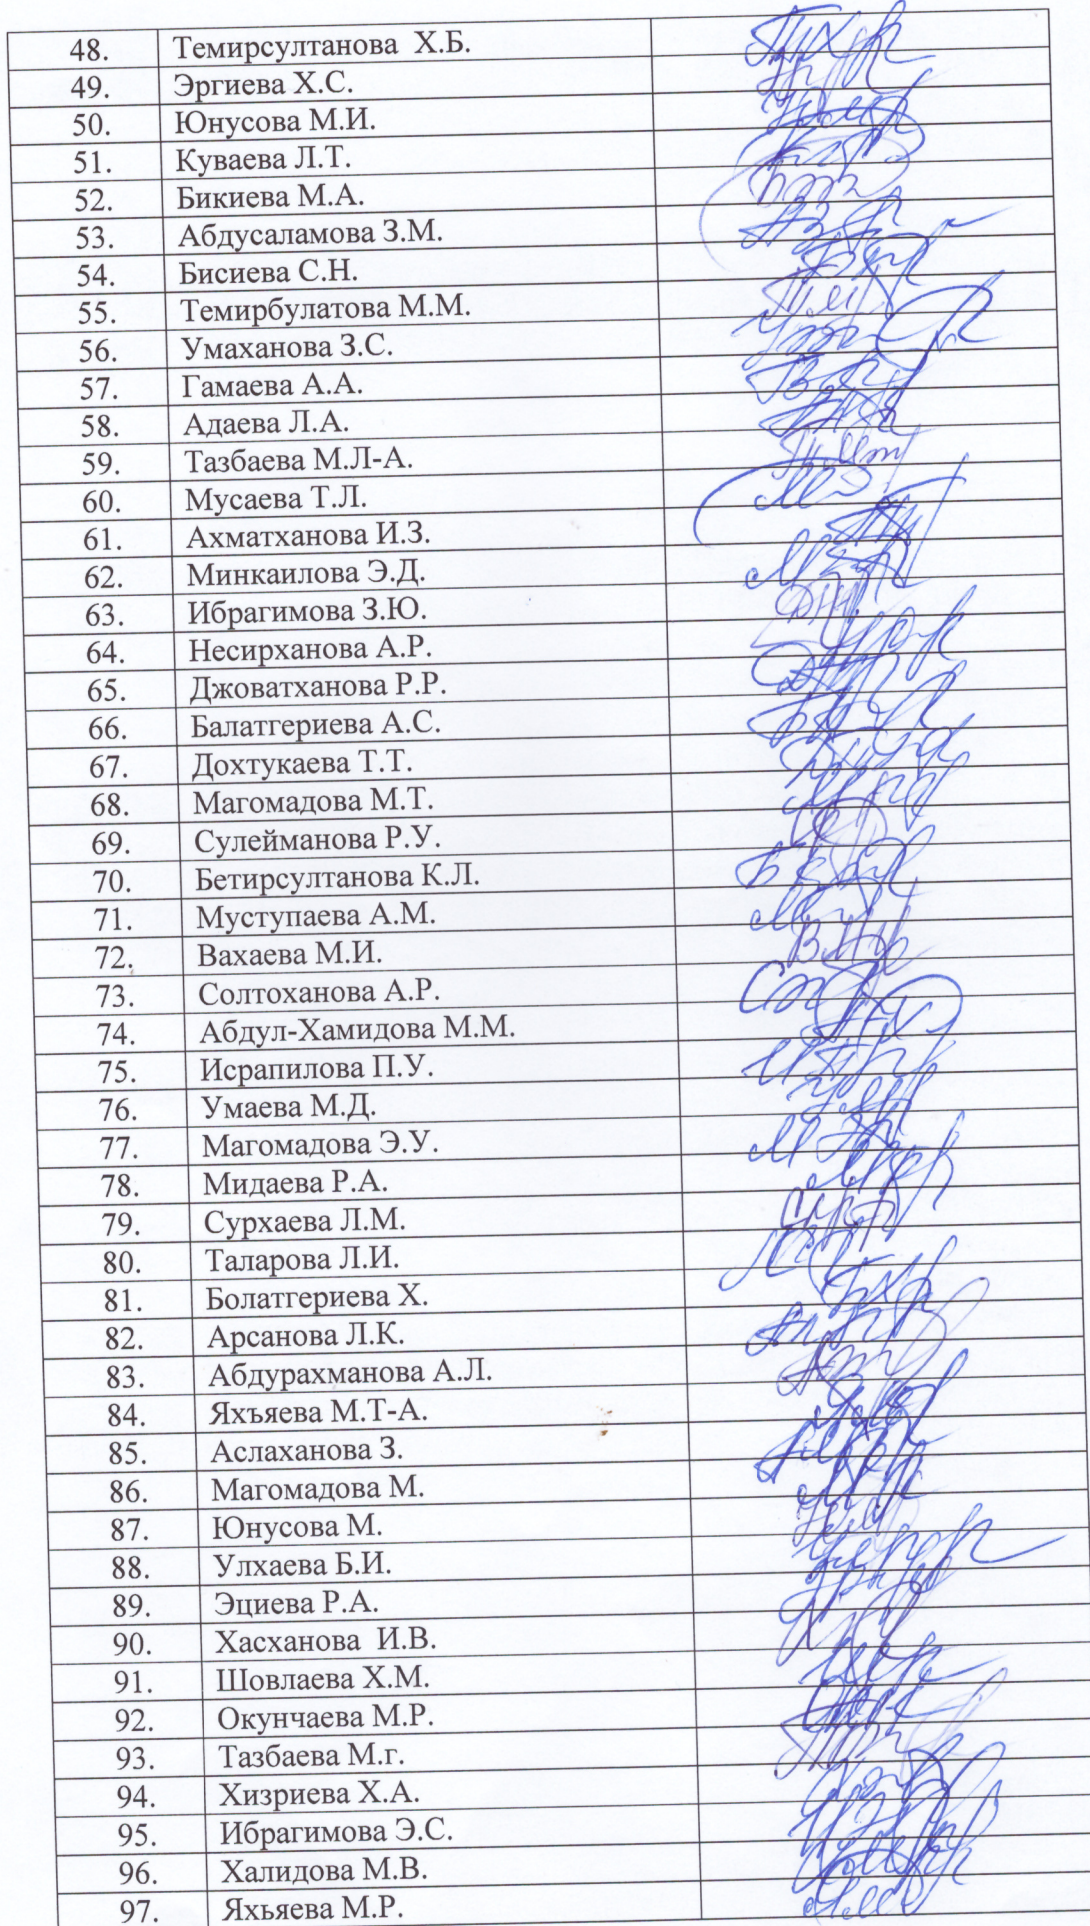 48. Темирсултанова Х.Б.
49. Эргиева Х.С.
50. Юнусова М.И.
51. Куваева Л.Т.
52. Бикиева М.А.
53. Абдусаламова З.М.
54. Бисиева С.Н.
55. Темирбулатова М.М.
56. Умаханова З.С.
57. Гамаева А.А.
58. Адаева Л.А.
59. Тазбаева М.Л-А.
60. Мусаева Т.Л.
61. Ахматханова И.З.
62. Минкаилова Э.Д.
63. Ибрагимова З.Ю.
64. Несирханова А.Р.
65. Джоватханова Р.Р.
66. Балатгериева А.С.
67. Дохтукаева Т.Т.
68. Магомадова М.Т.
69. Сулейманова Р.У.
70. Бетирсултанова К.Л.
71. Муступаева А.М.
72. Вахаева М.И.
73. Солтоханова А.Р.
74. Абдул-Хамидова М.М.
75. Исрапилова П.У.
76. Умаева М.Д.
77. Магомадова Э.У.
78. Мидаева Р.А.
79. Сурхаева Л.М.
80. Таларова Л.И.
81. Болатгериева Х.
82. Арсанова Л.К.
83. Абдурахманова А.Л.
84. Яхъяева М.Т-А.
85. Аслаханова З.
86. Магомадова М.
87. Юнусова М.
88. Улхаева Б.И.
89. Эциева Р.А.
90. Хасханова И.В.
91. Шовлаева Х.М.
92. Окунчаева М.Р.
93. Тазбаева М.г.
94. Хизриева Х.А.
95. Ибрагимова Э.С.
96. Халидова М.В.
97. Яхьяева М.Р.